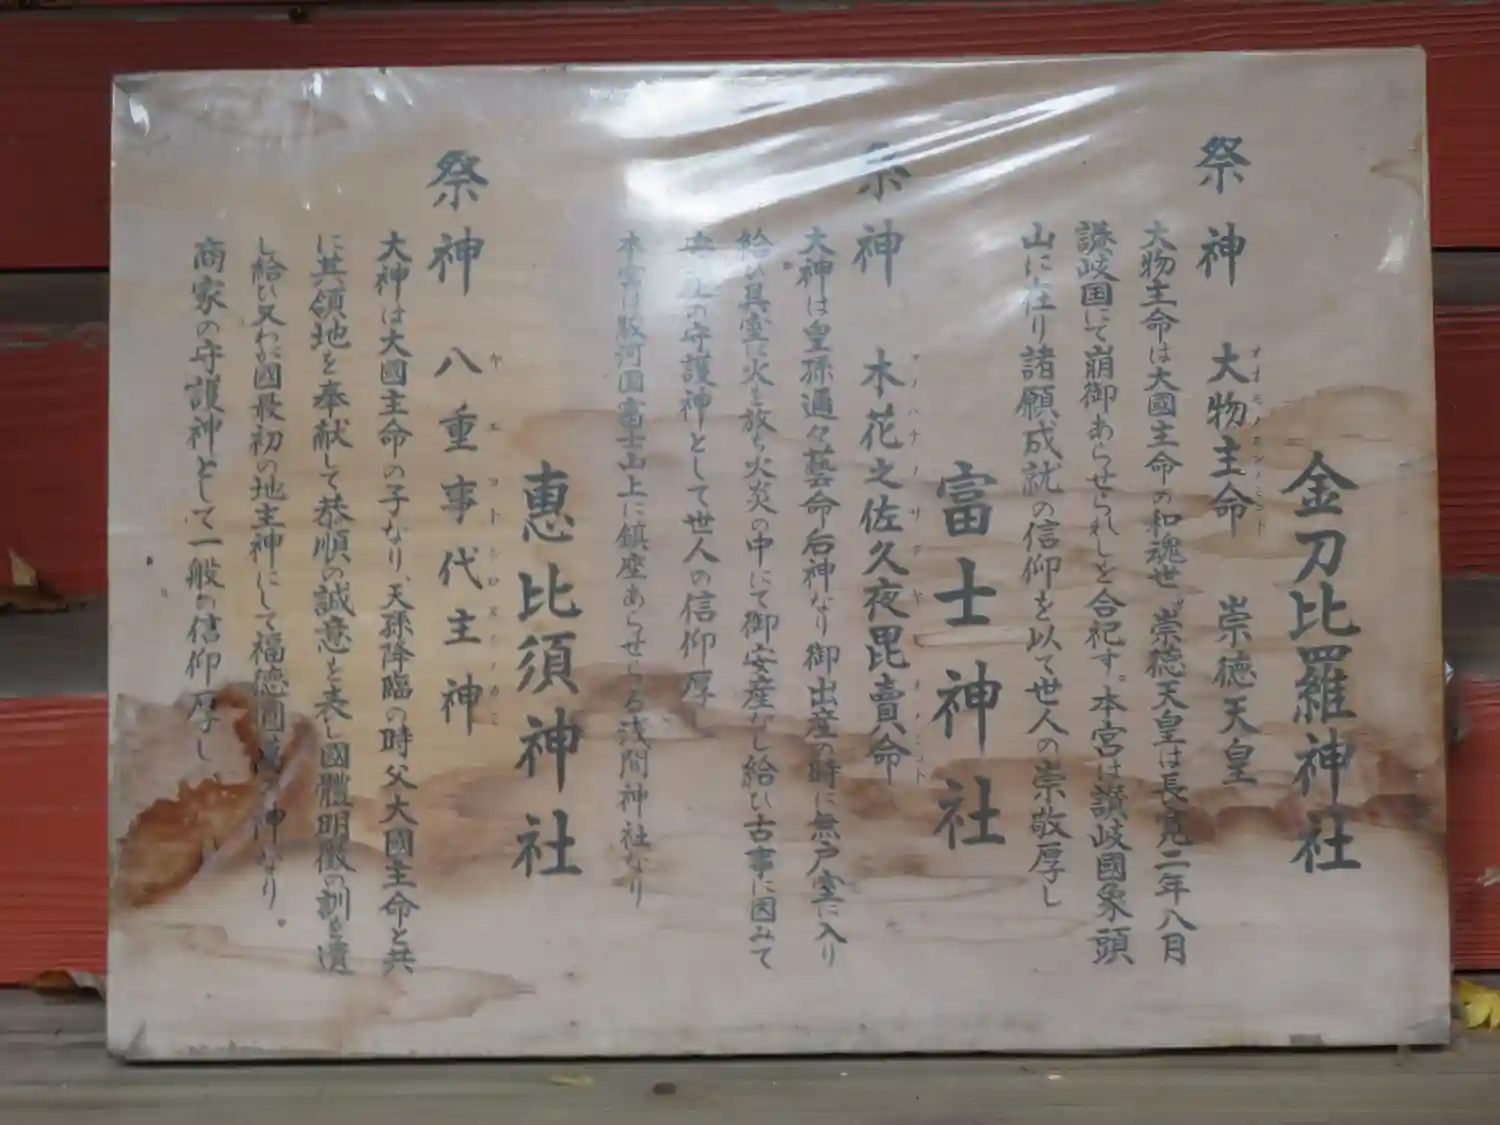 金刀比羅神社
祭神 大物主命 崇德天皇
オオモノヌシノミコト
大物主命は大國主命の和魂也、崇德天皇は長寛二年八月
讃岐国にて崩御あらせられしを合祀す。本宮は讃岐國象頭
山に在り諸願成就の信仰を以て世人の崇敬厚し
富士神社
祭神 木花之佐久夜毘賣命
コノハナノサクヤヒメノミコト
大神は皇孫邇々藝命后神なり御出産の時に無戸室に入り
給ひ其室に火を放ち火炎の中にて御安産なし給ひ古事に因みて
の守護神として世人の信仰厚
本宮は駿河国富士山上に鎮座あらせらる浅間神社なり
恵比須神社
祭神 八重事代主神
ヤエコトシロヌシノカミ
大神は大國主命の子なり、天孫降臨の時父大國主命と共
に其領地を奉献して恭順の誠意を表し國體明徴の訓を遺
し給ひ又わが國最初の地主神にして福德圓満の神なり。
商家の守護神として一般の信仰厚し